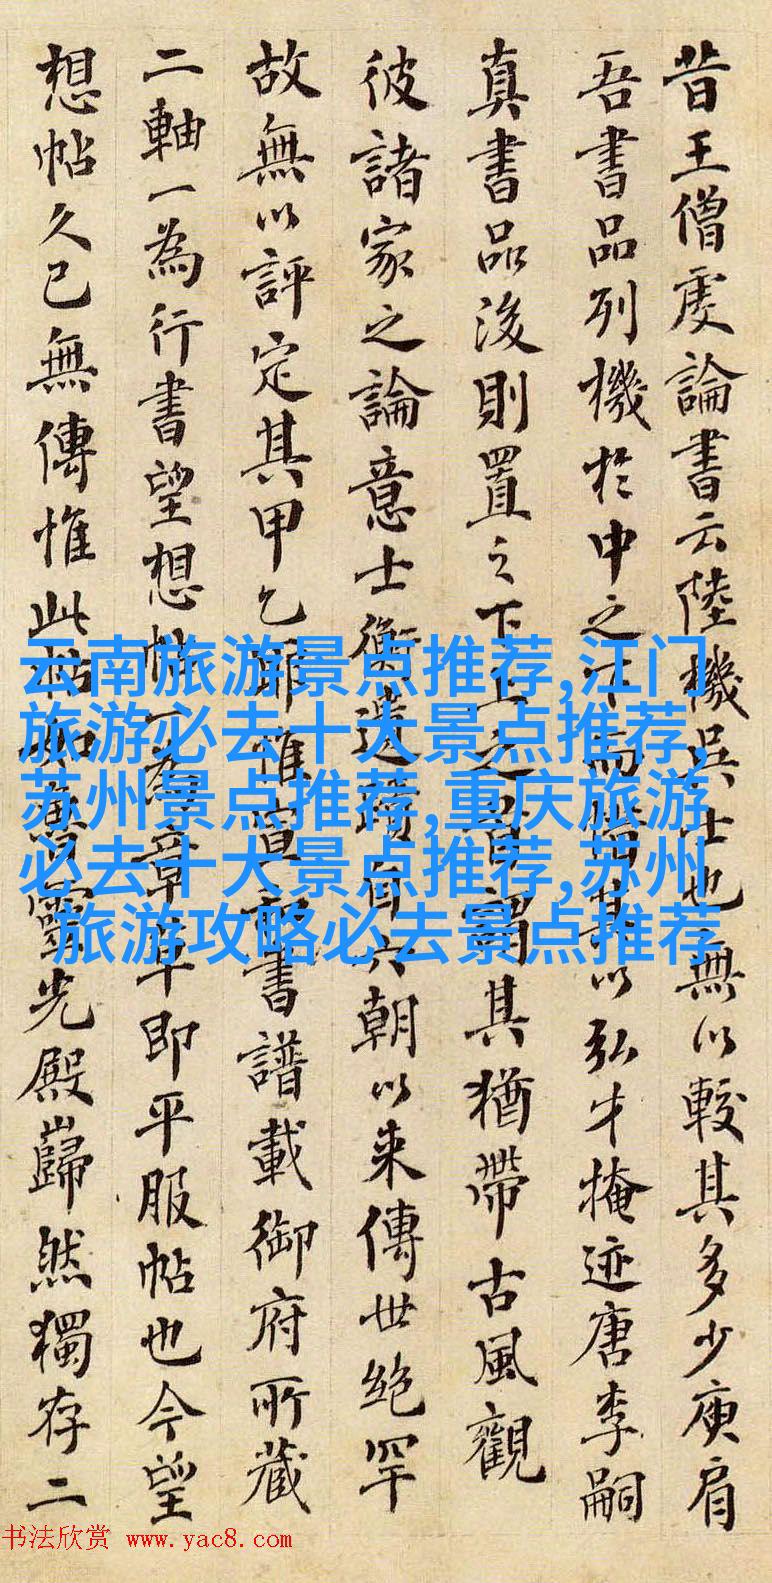 昔王僧虔論書云陸機吳士也無以較其多少庾肩
吾書品列機於中之下而惜其以弘才掩迹唐李嗣
真書品後則置之下上之首謂其猶帶古風觀
彼諸家之論意士衡遺蹟自六朝以來傳世絕罕
故無以評定其甲乙耶惟宣和書譜載御府所藏
二軸一為行書望想帖一為章草即平服帖也今望
想帖久已無傳惟此帖如魯靈光殿巋然獨存二
云南旅游景点推荐,江门
旅游必去十大景点推荐,
苏州景点推荐,重庆旅游
必去十大景点推荐,苏州
旅游攻略必去景点推荐
书法欣赏 www.yac8.com